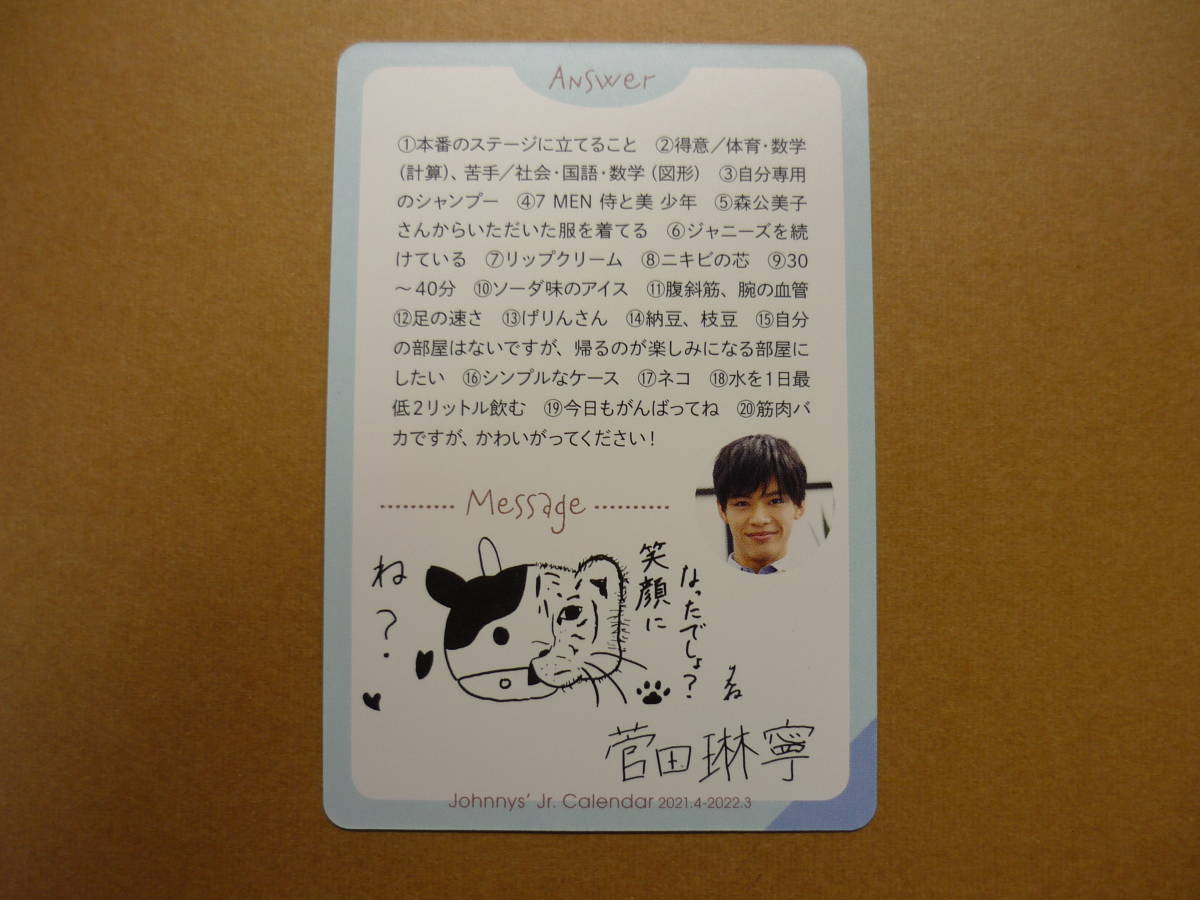 Answer
①本番のステージに立てること　②得意／体育・数学
（計算）、苦手／社会・国語・数学（図形）　③自分専用
のシャンプー　④7 MEN 侍と美 少年　⑤森公美子
さんからいただいた服を着てる　⑥ジャニーズを続
けている　⑦リップクリーム　⑧ニキビの芯　⑨30
～40分　⑩ソーダ味のアイス　⑪腹斜筋、腕の血管
⑫足の速さ　⑬げりんさん　⑭納豆、枝豆　⑮自分
の部屋はないですが、帰るのが楽しみになる部屋に
したい　⑯シンプルなケース　⑰ネコ　⑱水を1日最
低2リットル飲む　⑲今日もがんばってね　⑳筋肉バ
カですが、かわいがってください！
Message
笑顔に
なったでしょ？
ね？
菅田琳寧
Johnnys' Jr. Calendar 2021.4-2022.3